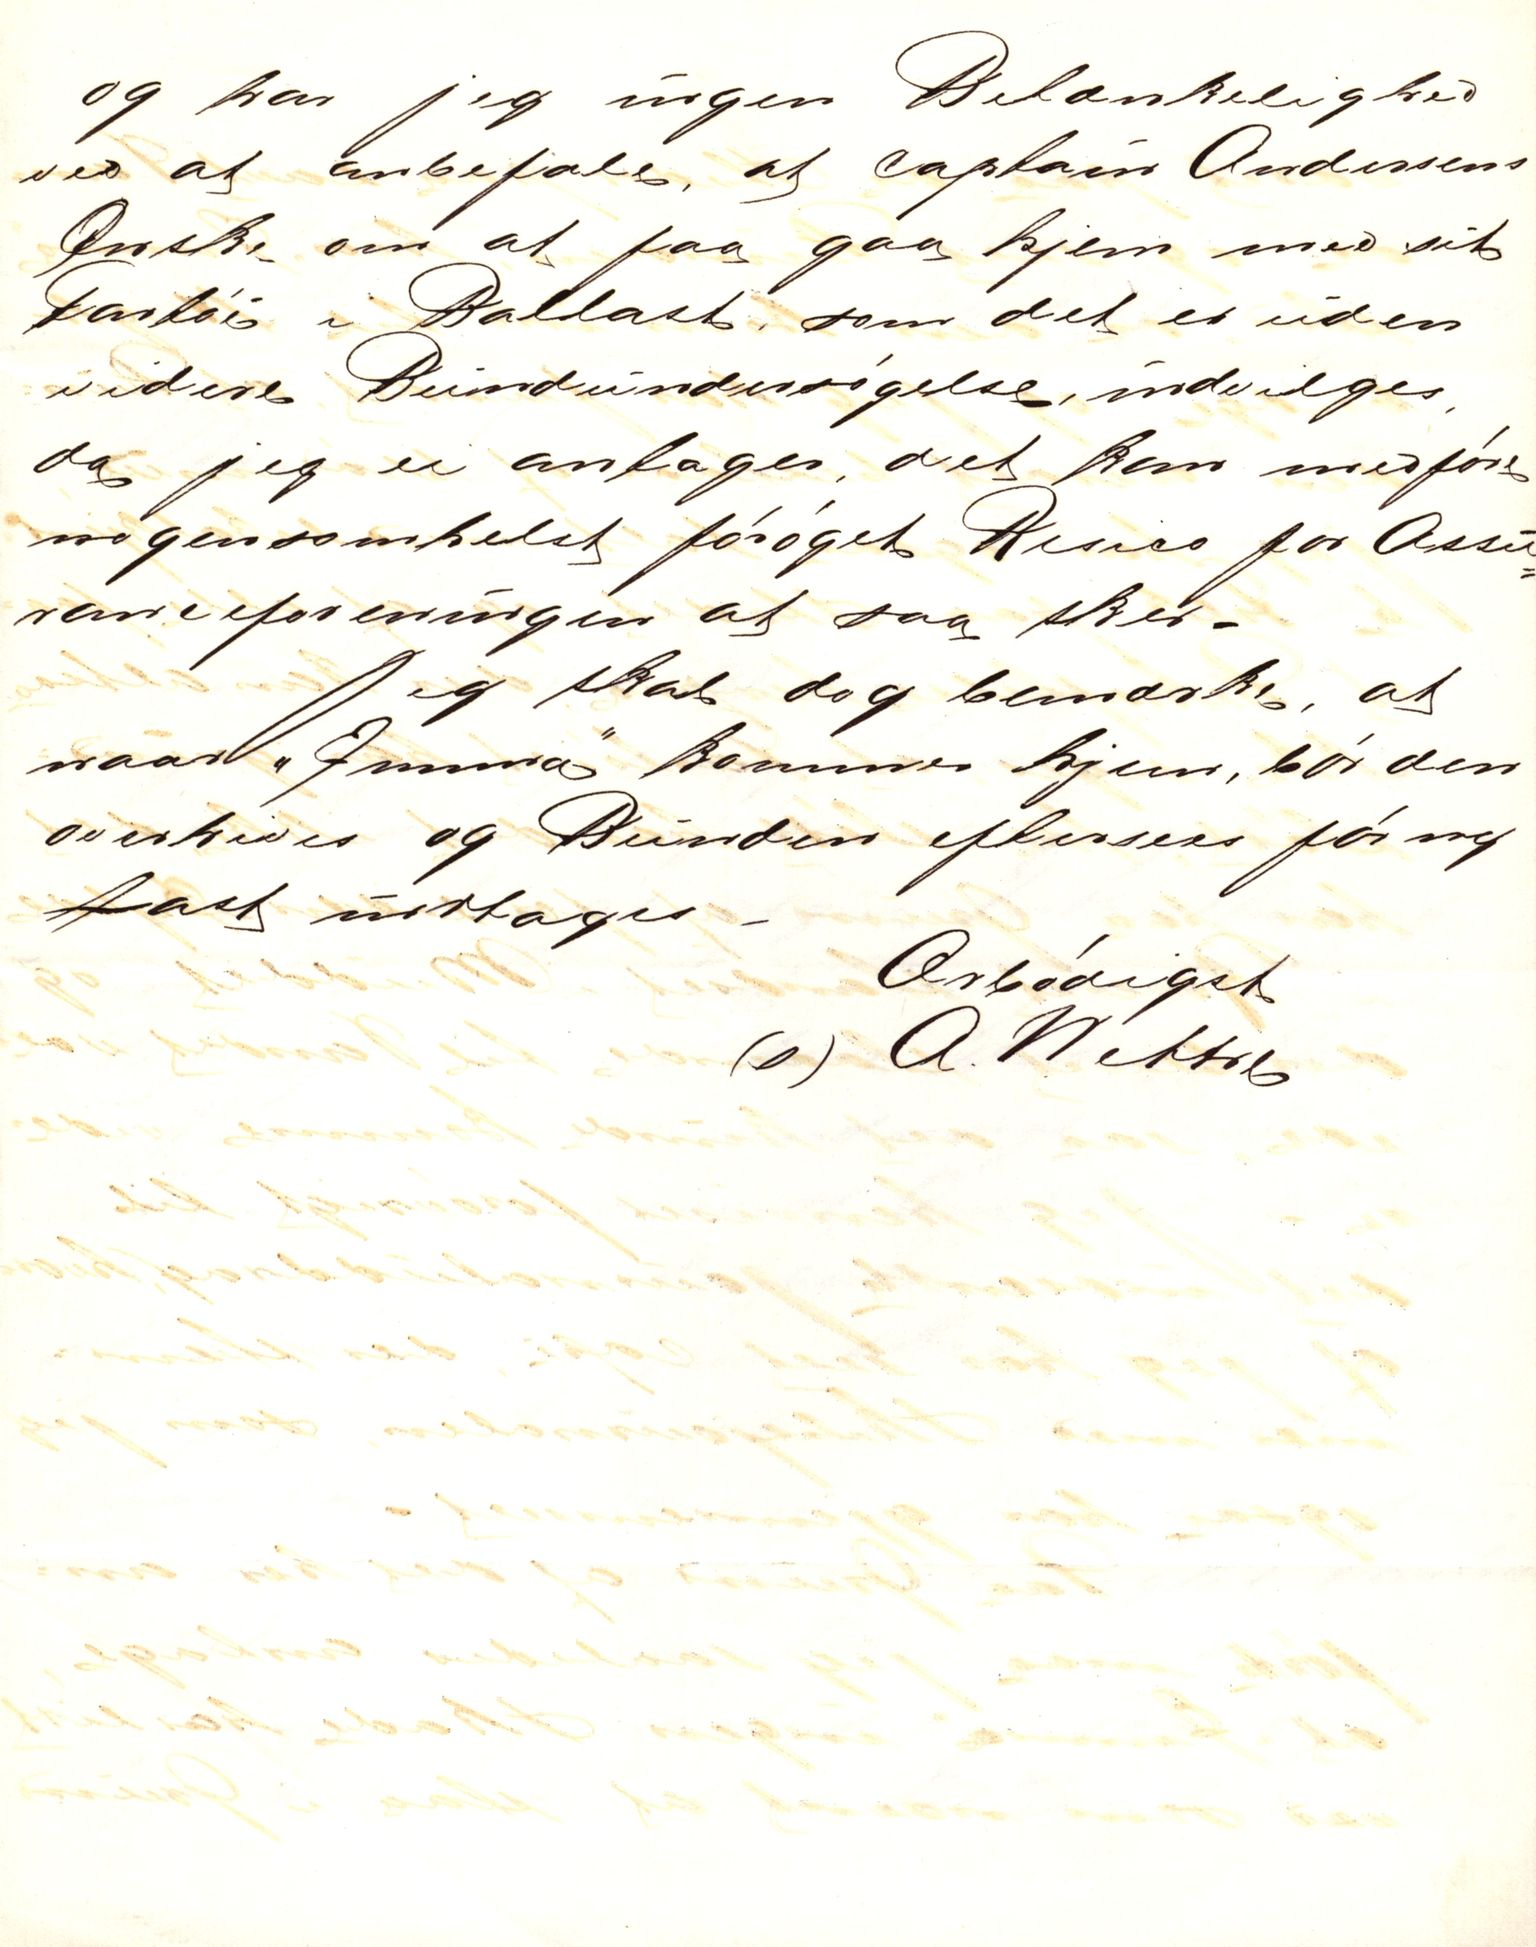 og har jeg ingen Betænkelighed
ved at anbefale, at Captain Andersens
Ønske om at faa gaa hjem med sit
Fartöi i Ballast, som det er uden
videre Bundundersögelse, indvilges,
da jeg ei antager, det kan medföre
nogensomhelst foröget Risico for Assu=
ranceforeningen at saa sker.-
Jeg skal dog bemærke, at
naar "Imma" kommer hjem, bör den
overhives og Bunden eftersees för ny
Last indtages -
Ærbödigst
(s) A. Wettre